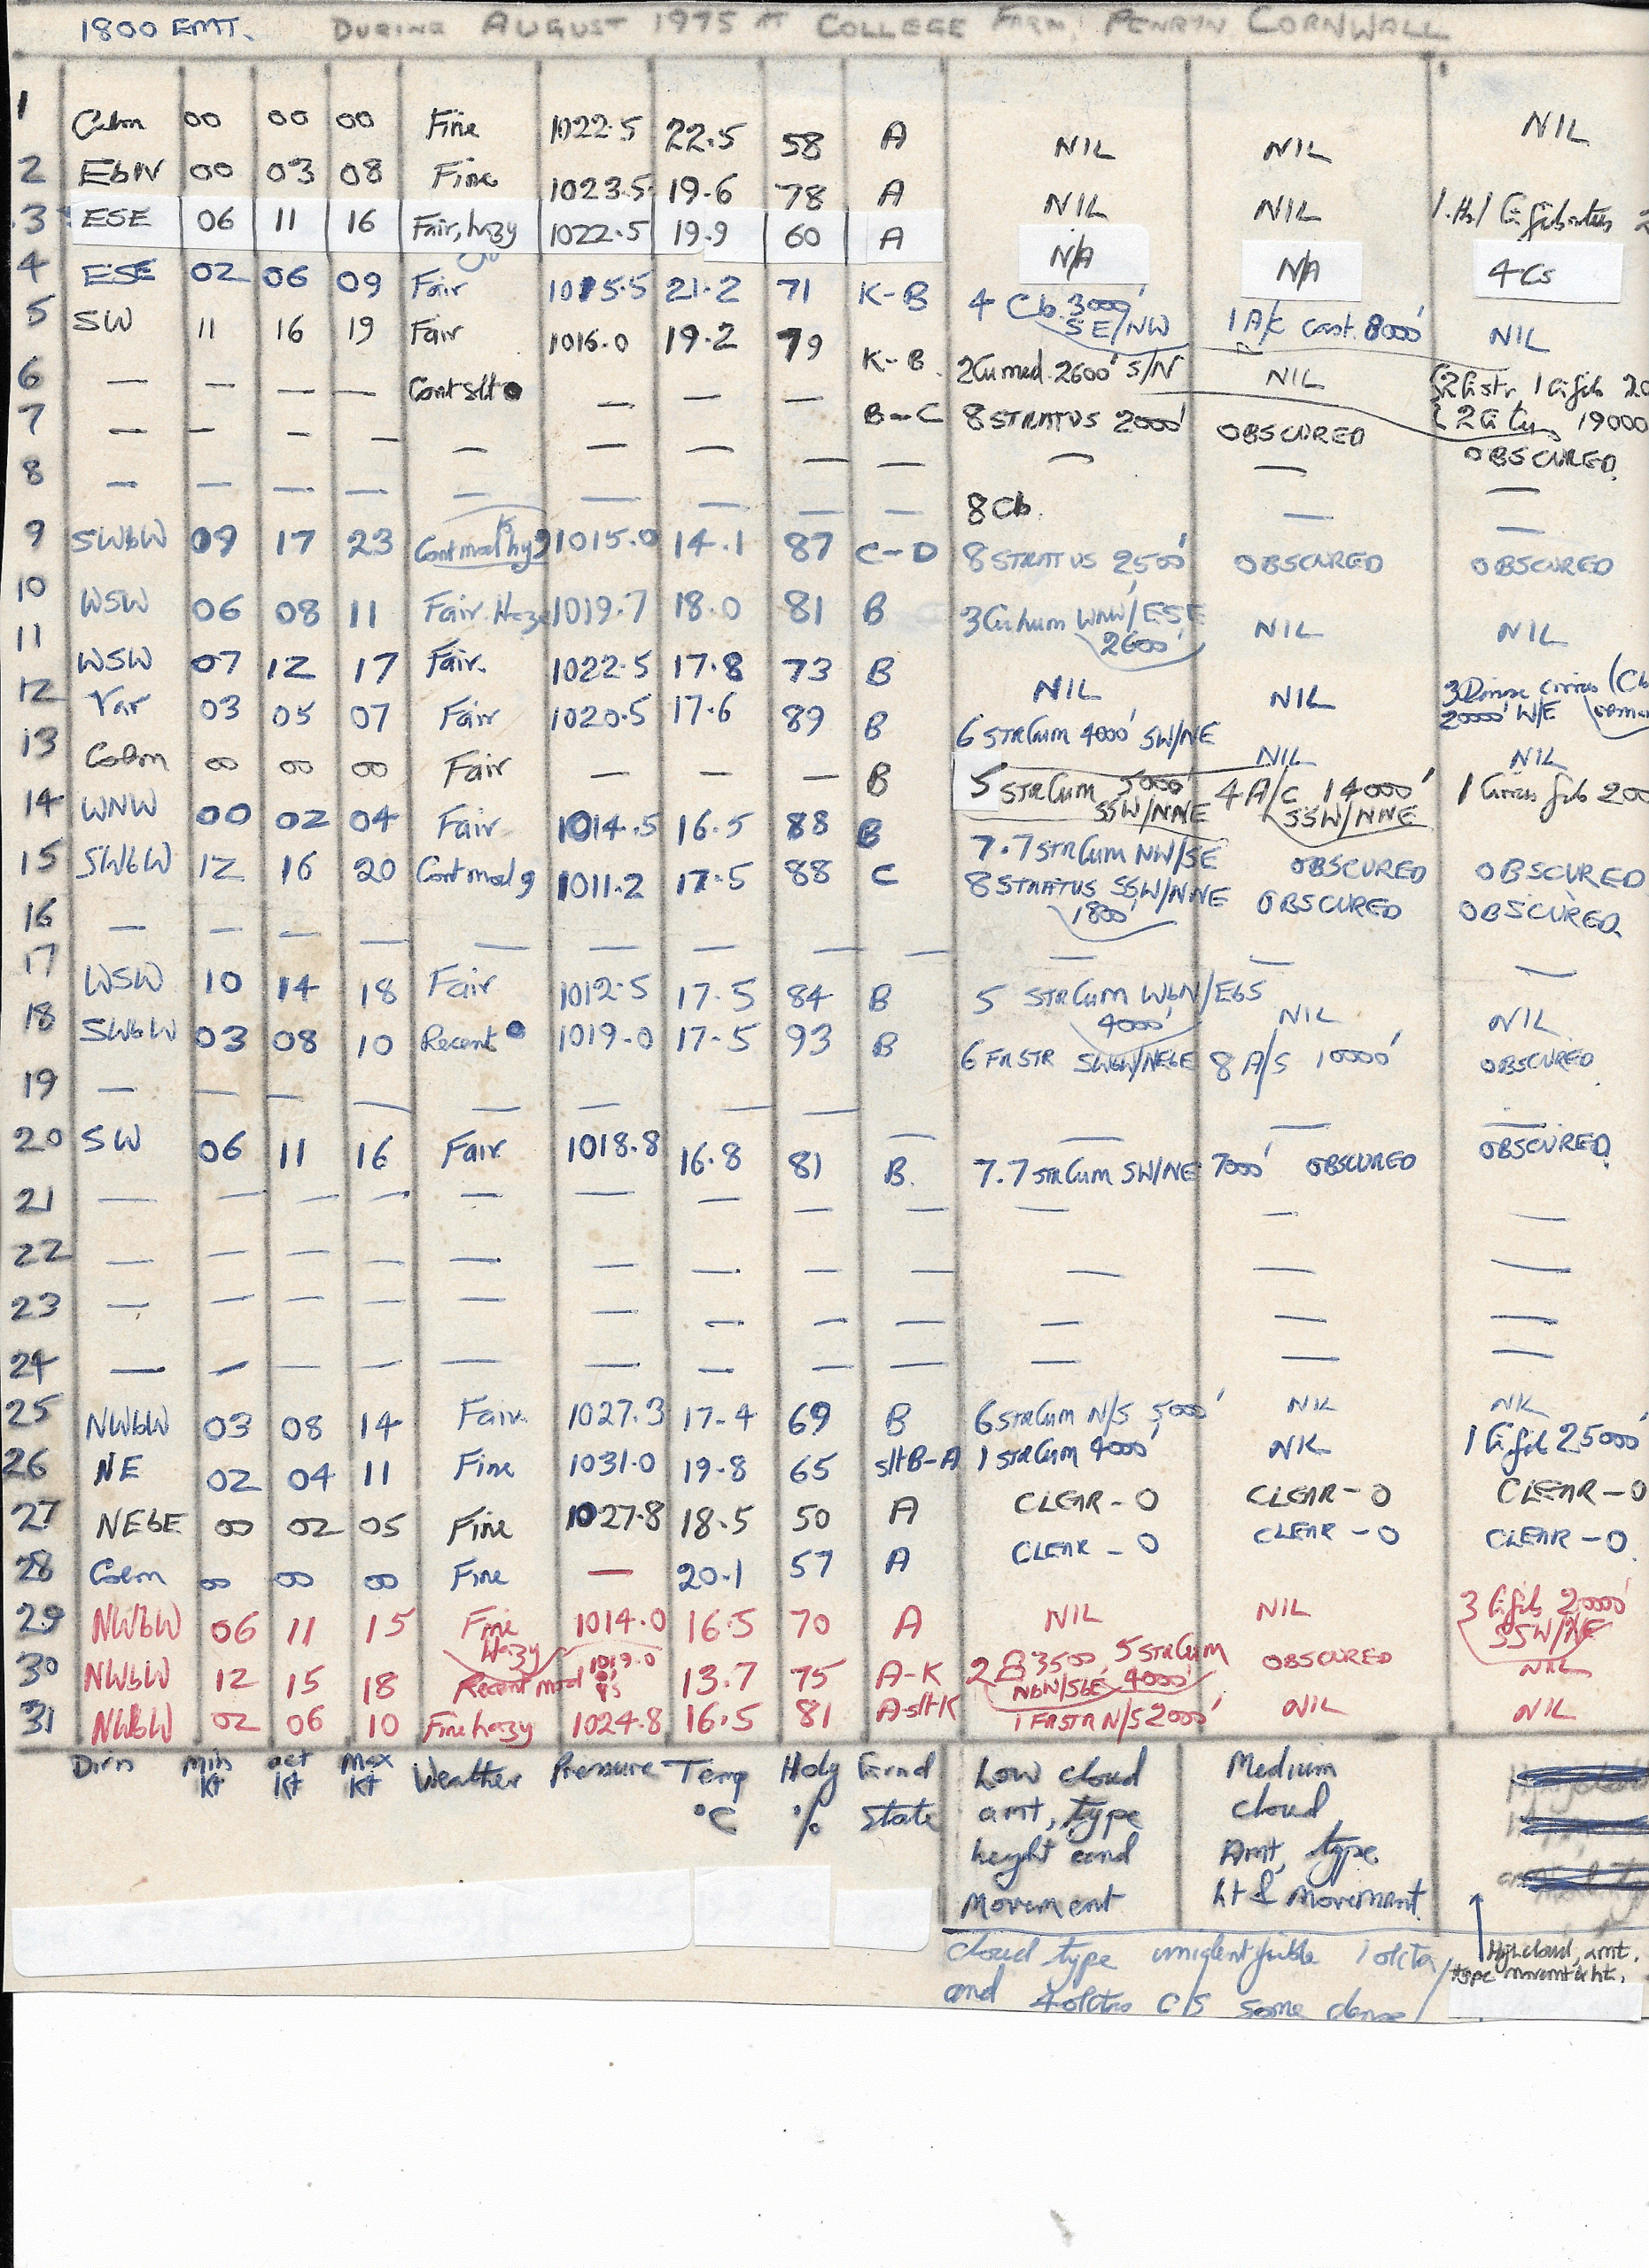 1800 GMT. DURING AUGUST 1975 AT COLLEGE FARM, PENRYN, CORNWALL
1 Calm 00 00 00 Fine 1022.5 22.5 58 A NIL NIL NIL
2 EbN 00 03 08 Fine 1023.5 19.6 78 A NIL NIL
3 ESE 06 11 16 Fair, hazy 1022.5 19.9 60 A N/A N/A 4 Cs
4 ESE 02 06 09 Fair 1015.5 21.2 71 K-B 4 Cb. 3000' SE/NW 1 A/c cast. 8000' NIL
5 SW 11 16 19 Fair 1016.0 19.2 79 K-B. 2 Cu med. 2600' S/N NIL
6 — — — — Cont slt ● — — — B-C 8 STRATUS 2000' OBSCURED OBSCURED.
7 — — — — — — — — — — — —
8 — — — — — — — — — 8 Cb. — —
9 SWbW 09 17 23 1015.0 14.1 87 C-D 8 STRATUS 2500' OBSCURED OBSCURED
10 WSW 06 08 11 Fair Haze 1019.7 18.0 81 B 3 Cu hum WNW/ESE 2600' NIL NIL
11 WSW 07 12 17 Fair. 1022.5 17.8 73 B NIL NIL 3 Dense cirrus 20000' W/E
12 Var 03 05 07 Fair 1020.5 17.6 89 B 6 STRCum 4000' SW/NE NIL NIL
13 Calm 00 00 00 Fair — — — B 5 STRCum 5000' SSW/NNE 4 A/c 14000' SSW/NNE 1 Cirrus fib 200
14 WNW 00 02 04 Fair 1014.5 16.5 88 B 7.7 STRCum NW/SE OBSCURED OBSCURED
15 SWbW 12 16 20 Cont mod 9 1011.2 17.5 88 C 8 STRATUS SSW/NNE 1800' OBSCURED OBSCURED.
16 — — — — — — — — — — — —
17 WSW 10 14 18 Fair 1012.5 17.5 84 B 5 STRCum WbN/EbS 4000' NIL NIL
18 SWbW 03 08 10 Recent ● 1019.0 17.5 93 B 6 FRSTR SWbW/NEbE 8 A/S 10000' OBSCURED
19 — — — — — — — — — — — —
20 SW 06 11 16 Fair 1018.8 16.8 81 B. 7.7 STRCum SW/NE 7000' OBSCURED OBSCURED.
21 — — — — — — — — — — — —
22 — — — — — — — — — — — —
23 — — — — — — — — — — —
24 — — — — — — — — — — — —
25 NWbW 03 08 14 Fair. 1027.3 17.4 69 B 6 STRCum N/S 5000' NIL NIL
26 NE 02 04 11 Fine 1031.0 19.8 65 slt B-A 1 STRCum 4000' NIL 1 Ci fib 25000'
27 NEbE 00 02 05 Fine 1027.8 18.5 50 A CLEAR - 0 CLEAR - 0 CLEAR - 0
28 Calm 00 00 00 Fine — 20.1 57 A CLEAR - 0 CLEAR - 0 CLEAR - 0.
29 NWbW 06 11 15 Fine Hazy 1014.0 16.5 70 A NIL NIL 3 Ci fib 20000' SSW/NE
30 NWbW 12 15 18 Recent mod 1019.0 13.7 75 A-K 3500 NbW/SbE 5 STRCum 4000' OBSCURED NIL
31 NWbW 02 06 10 Fine hazy 1024.8 16.5 81 A slt K 1 FRSTR N/S 2000' NIL NIL
Dirn Min Kt act Kt Max Kt Weather Pressure Temp °C Hdy % Grnd State
Low cloud amt, type height and Movement
Medium cloud Amt, type. ht & movement.
High cloud, amt. type movemt & ht.
cloud type unidentifiable 1 okta/
and 4 oktas C/S some dense/